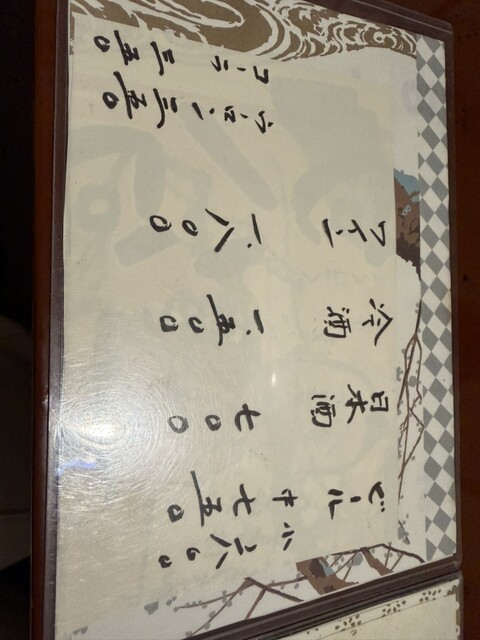 ビール 中 七五〇
小 六〇〇
日本酒 七〇〇
冷酒 一、五〇〇
ワイン 一、八〇〇
ウーロン 三五〇
コーラ 三五〇